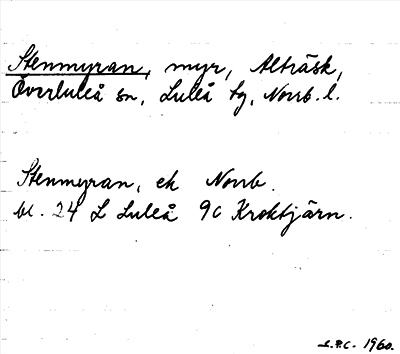 Stenmyran, myr, Alträsk,
Överluleå sn, Luleå tg, Norrb. l.
Stenmyran, ek Norrb.
bl. 24 L Luleå 9c Kroktjärn.
S.P.C. 1960.